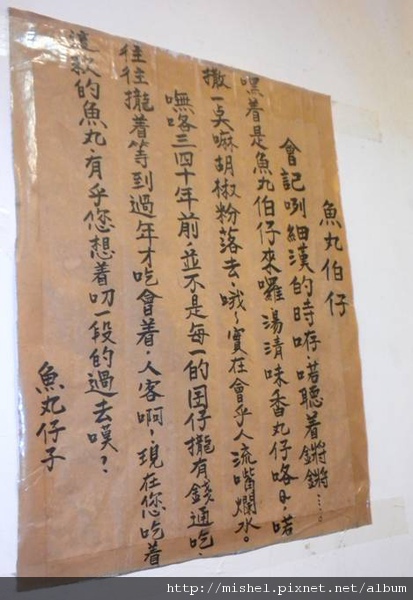 魚丸伯仔
會記咧細漢的時存咕喏聽着鏘鏘……。
嘿着是魚丸伯仔來囉湯清味香丸仔咯日,喏
撒一点嘛胡椒粉落去,哦~實在會乎人流嘴爛水。
嘸咯三四十年前,並不是每一的囝仔攏有錢通吃,
往往攏着等到過年才吃會着,人客啊,現在您吃着
這款的魚丸,有乎您想着叨一段的過去嘆?
魚丸仔子
http://mishel.pixnet.net/album